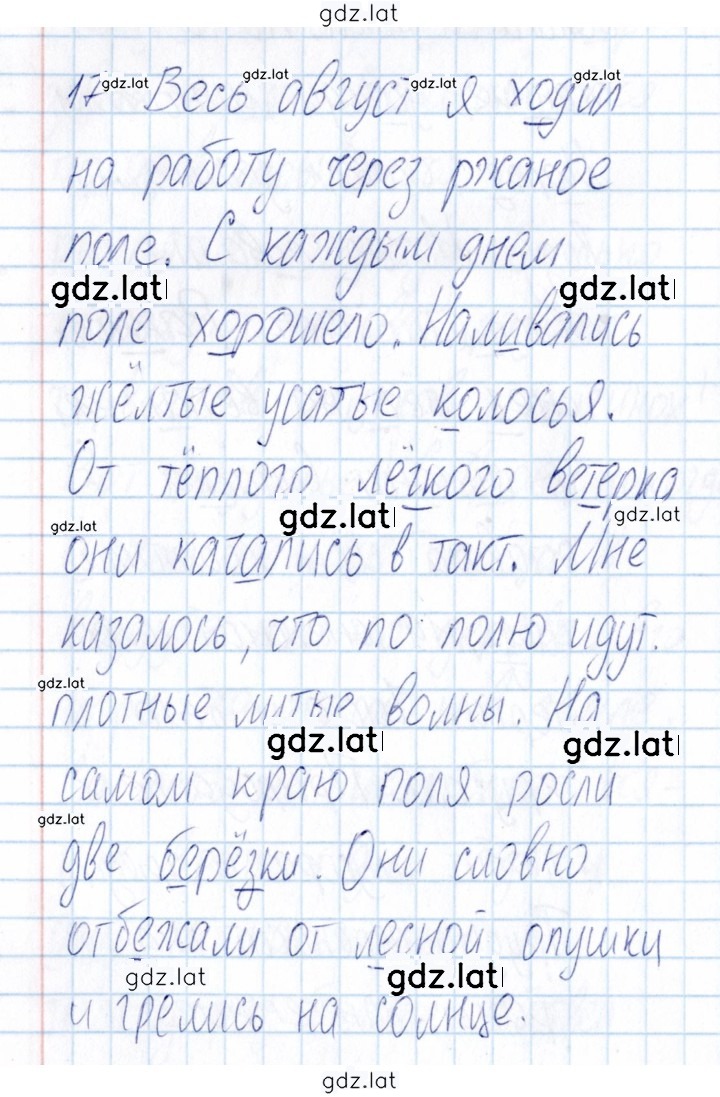 gdz.lat
17 gdz.lat Весь gdz.lat август gdz.lat я ходил gdz.lat
на работу через ржаное
поле. С каждым днем
gdz.lat gdz.lat
поле хорошело. Наливались
жёлтые усатые колосья.
От тёплого лёгкого ветерка
gdz.lat gdz.lat gdz.lat
они качались в такт. Мне
казалось, что по полю идут
gdz.lat
плотные литые волны. На
gdz.lat gdz.lat
самом краю поля росли
gdz.lat
две берёзки. Они словно
отбежали от лесной опушки
gdz.lat gdz.lat
и грелись на солнце.
gdz.lat